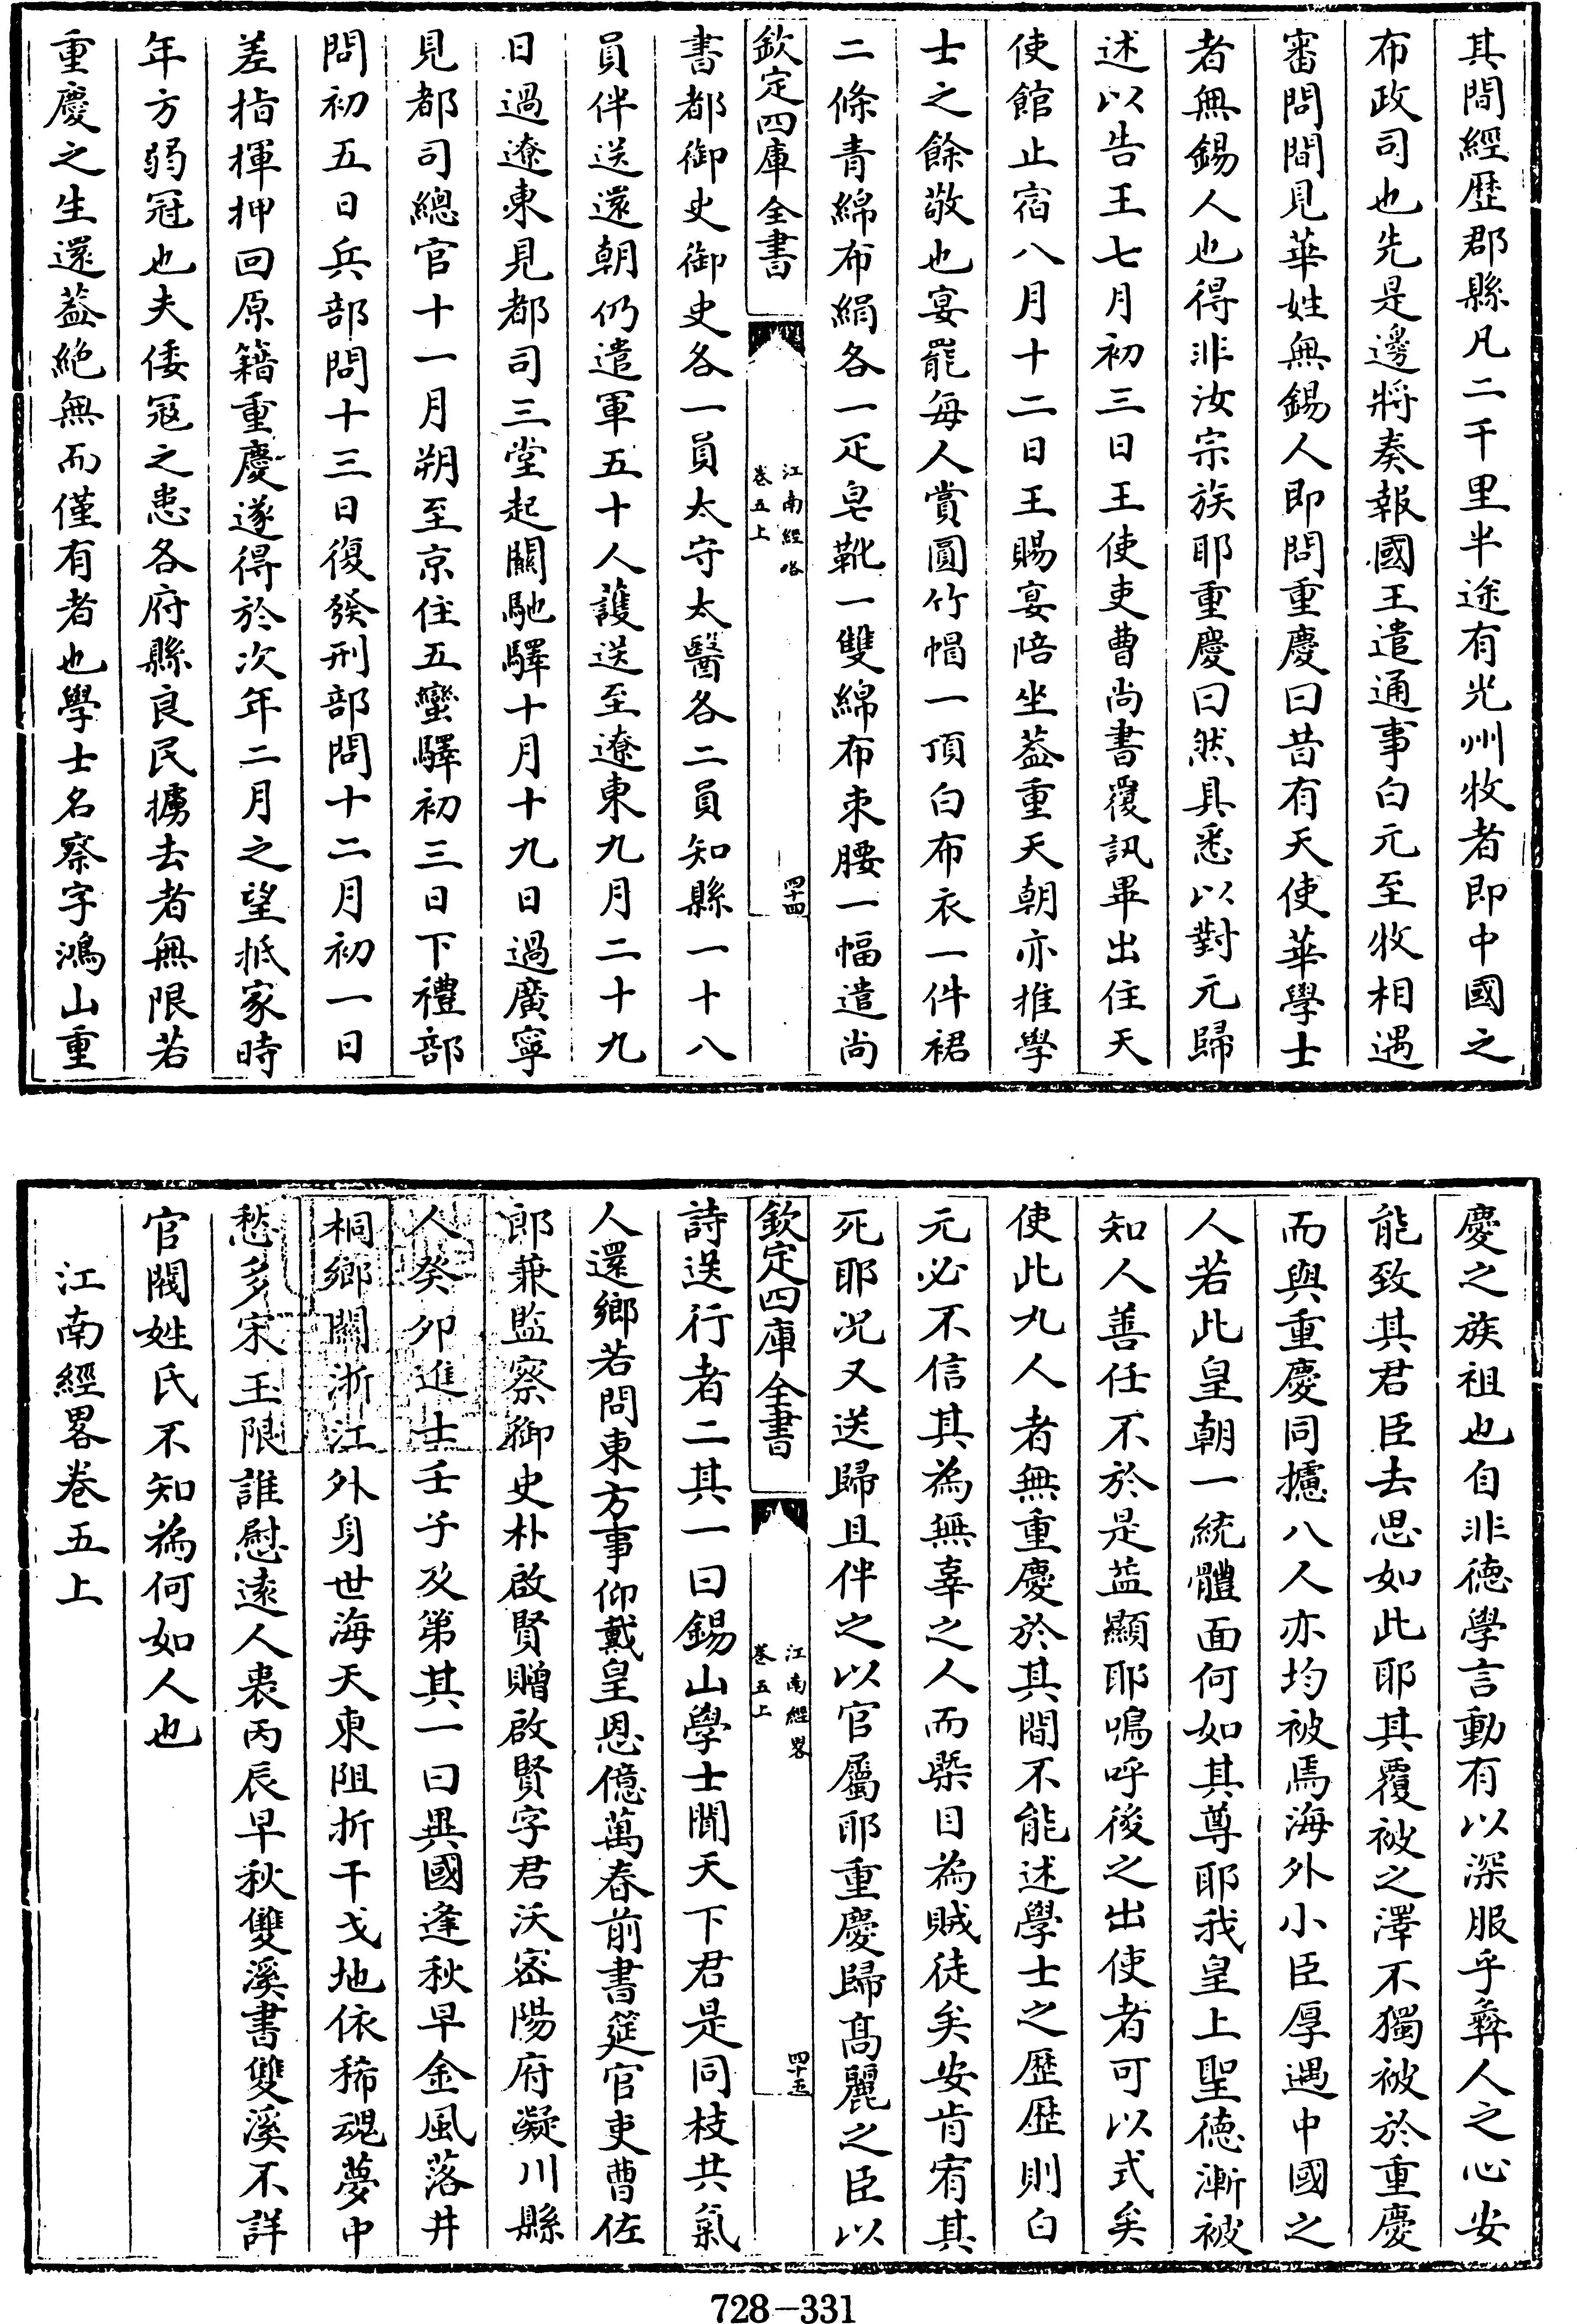 其間經歴郡縣凡二千里半途有光州牧者即中國之
布政司也先是邊將奏報國王遣通事白元至牧相遇
審問間見華姓無錫人即問重慶曰昔有天使華學士
者無錫人也得非汝宗族耶重慶曰然具悉以對元歸
述以告王七月初三日王使吏曹尚書覆訊畢出住天
使館止宿八月十二日王賜宴陪坐葢重天朝亦推學
士之餘敬也宴罷每人賞圓竹帽一頂白布衣一件裙
二條青綿布絹各一疋皂靴一雙綿布束腰一幅遣尚
欽定四庫全書
江南經畧
卷五上
四十四
書都御史御史各一員太守太醫各二員知縣一十八
員伴送還朝仍遣軍五十人護送至遼東九月二十九
日過遼東見都司三堂起關馳驛十月十九日過廣寧
見都司總官十一月朔至京住五蠻驛初三日下禮部
問初五日兵部問十三日復發刑部問十二月初一日
差指揮押回原籍重慶遂得於次年二月之望抵家時
年方弱冠也夫倭寇之患各府縣良民擄去者無限若
重慶之生還葢絶無而僅有者也學士名察字鴻山重
慶之族祖也自非德學言動有以深服乎彝人之心安
能致其君臣去思如此耶其覆被之澤不獨被於重慶
而與重慶同攄八人亦均被焉海外小臣厚遇中國之
人若此皇朝一統體面何如其尊耶我皇上聖德漸被
知人善任不於是益顯耶嗚呼後之出使者可以式矣
使此九人者無重慶於其間不能述學士之歴歴則白
元必不信其為無辜之人而槩目為賊徒矣安肯宥其
死耶况又送歸且伴之以官屬耶重慶歸髙麗之臣以
欽定四庫全書
江南經畧
卷五上
四十五
詩送行者二其一曰錫山學士聞天下君是同枝共氣
人還鄉若問東方事仰戴皇恩億萬春前書筵官吏曹佐
郎兼監察御史朴啟賢贈啟賢字君沃宻陽府凝川縣
人癸卯進士壬子及第其一曰異國逢秋早金風落井
桐鄉關浙江外身世海天東阻折干戈地依稀魂夢中
愁多宋玉限誰慰逺人裹丙辰早秋雙溪書雙溪不詳
官閥姓氏不知為何如人也
江南經畧卷五上
728-331